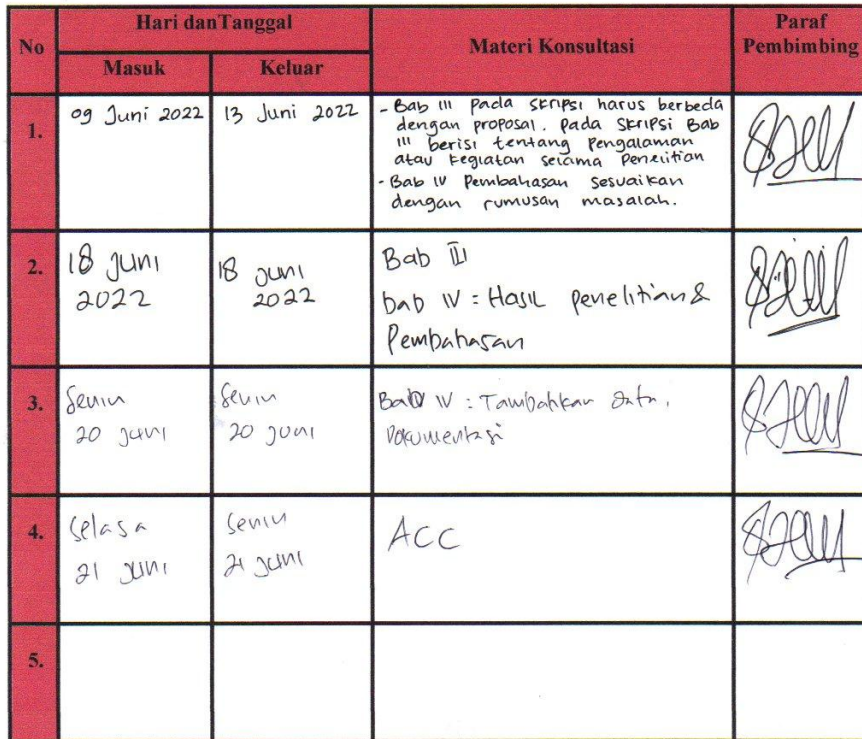 No
Hari danTanggal
Materi Konsultasi
Paraf
Pembimbing
Masuk
Keluar
1.
09 Juni 2022
13 Juni 2022
- Bab III pada skripsi harus berbeda
dengan proposal. Pada skripsi Bab
III berisi tentang pengalaman
atau kegiatan selama penelitian
- Bab IV Pembahasan sesuaikan
dengan rumusan masalah.
2.
18 Juni
2022
18 Juni
2022
Bab III
bab IV : Hasil penelitian &
Pembahasan
3.
Senin
20 Juni
Senin
20 Juni
Bab IV : Tambahkan data,
Dokumentasi
4.
Selasa
21 Juni
Senin
21 Juni
ACC
5.